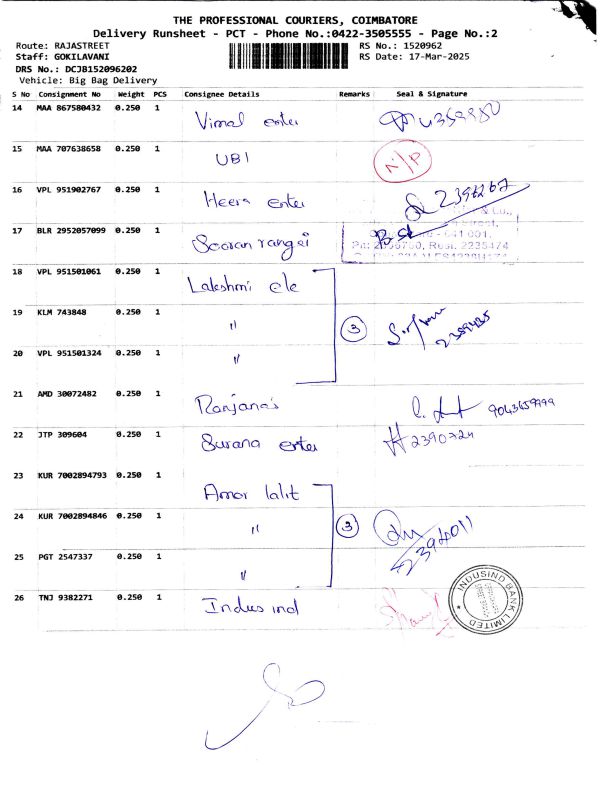 THE PROFESSIONAL COURIERS, COIMBATORE
Delivery Runsheet - PCT - Phone No.:0422-3505555 - Page No.:2
Route: RAJASTREET RS No.: 1520962
Staff: GOKILAVANI RS Date: 17-Mar-2025
DRS No.: DCJB152096202
Vehicle: Big Bag Delivery
S No Consignment No Weight PCS Consignee Details Remarks Seal & Signature
14 MAA 867580432 0.250 1 Vimal enter
15 MAA 707638658 0.250 1 UBI N/P
16 VPL 951902767 0.250 1 Heera enter 2396267
17 BLR 2952057099 0.250 1
18 VPL 951501061 0.250 1 Lakshmi ele
19 KLM 743848 0.250 1 " 3
20 VPL 951501324 0.250 1 "
21 AMD 30072482 0.250 1 Ranjana's
22 JTP 309604 0.250 1 Surana enter
23 KUR 7002894793 0.250 1 Amar lalit
24 KUR 7002894846 0.250 1 " 3
25 PGT 2547337 0.250 1 "
26 TNJ 9382271 0.250 1 Indus ind
INDUSIND BANK LIMITED